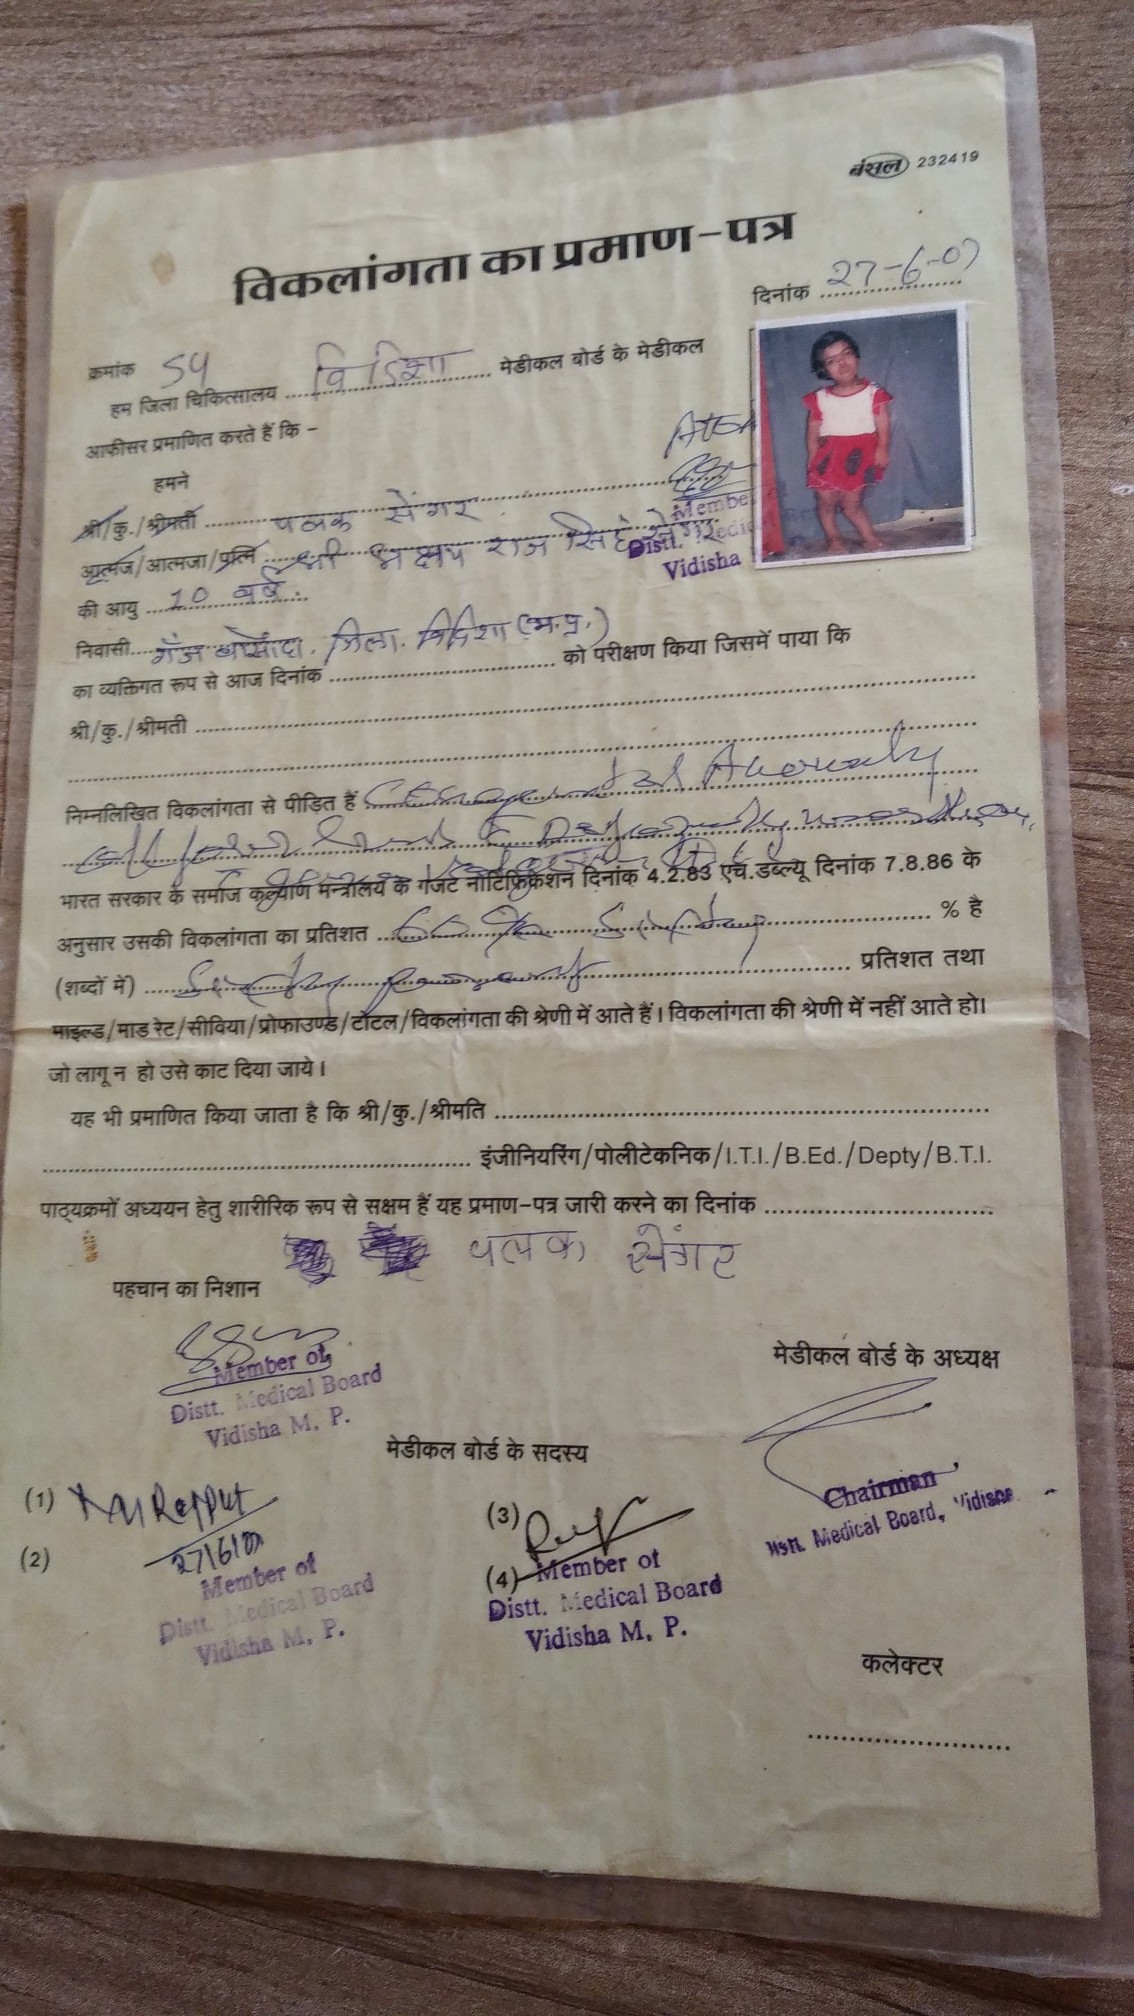 बंसल 232419
विकलांगता का प्रमाण-पत्र
दिनांक 27-6-07
क्रमांक 54
हम जिला चिकित्सालय विदिशा मेडीकल बोर्ड के मेडीकल
आफीसर प्रमाणित करते हैं कि -
हमने
श्री/कु./श्रीमती पलक सेंगर
आत्मज/आत्मजा/पत्नि श्री राज सिंह सेंगर
Distt.
Vidisha
की आयु 10 वर्ष
निवासी गंज बासौदा. जिला. विदिशा (म.प्र.)
का व्यक्तिगत रूप से आज दिनांक को परीक्षण किया जिसमें पाया कि
श्री/कु./श्रीमती
निम्नलिखित विकलांगता से पीड़ित हैं
भारत सरकार के समाज कल्याण मन्त्रालय के गजट नोटिफ्रिकेशन दिनांक 4.2.83 एच.डब्ल्यू दिनांक 7.8.86 के
अनुसार उसकी विकलांगता का प्रतिशत % है
(शब्दों में) प्रतिशत तथा
माइल्ड/माड रेट/सीविया/प्रोफाउण्ड/टोटल/विकलांगता की श्रेणी में आते हैं। विकलांगता की श्रेणी में नहीं आते हो।
जो लागू न हो उसे काट दिया जाये।
यह भी प्रमाणित किया जाता है कि श्री/कु./श्रीमति
इंजीनियरिंग/पोलीटेकनिक/I.T.I./B.Ed./Depty/B.T.I.
पाठ्यक्रमों अध्ययन हेतु शारीरिक रूप से सक्षम हैं यह प्रमाण-पत्र जारी करने का दिनांक
पलक सेंगर
पहचान का निशान
Member of
Distt. Medical Board
Vidisha M. P.
मेडीकल बोर्ड के अध्यक्ष
Chairman
Medical Board,
मेडीकल बोर्ड के सदस्य
(1) Rajput
(2) 27/6/07
Member of
Distt. Medical Board
Vidisha M. P.
(3)
(4) Member of
Distt. Medical Board
Vidisha M. P.
कलेक्टर